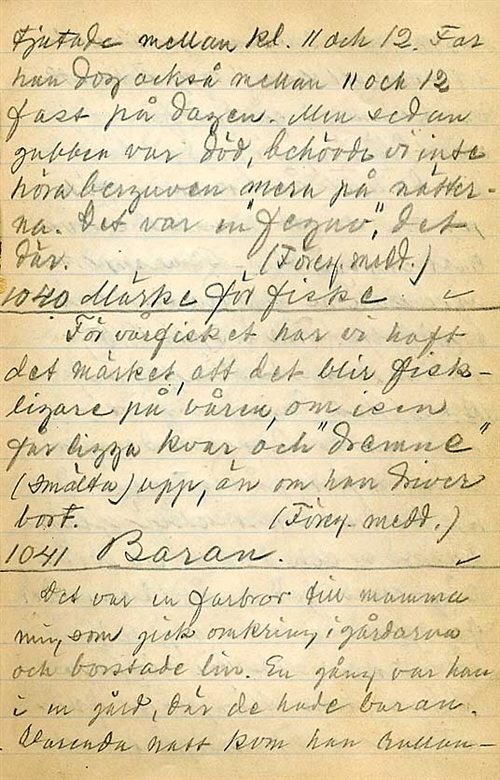 tjutade mellan kl. 11 och 12. Far
han dog också mellan 11 och 12
fast på dagen. Men sedan
gubben var död, behövde vi inte
höra berguven mera på nätter-
na. Det var en "feguv", det
där. (Föreg. medd.)
1040 Märke för fiske
För vårfisket har vi haft
det märket, att det blir fisk-
ligare på våren, om isen
får ligga kvar och "dremne"
(smälta) upp, än om han driver
bort. (Föreg. medd.)
1041 Baran.
Det var en farbror till mamma
min, som gick omkring i gårdarna
och borstade lin. En gång var han
i en gård, där de hade baran.
Varenda natt kom han